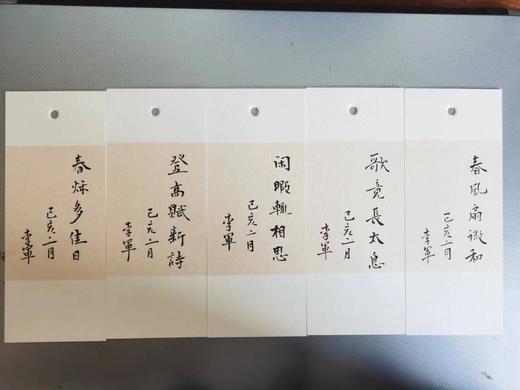 春秋多佳日
己亥二月
李軍
登高賦新詩
己亥二月
李軍
闲暇輒相思
己亥二月
李軍
歌竟長太息
己亥二月
李軍
春风扇微和
己亥二月
李軍